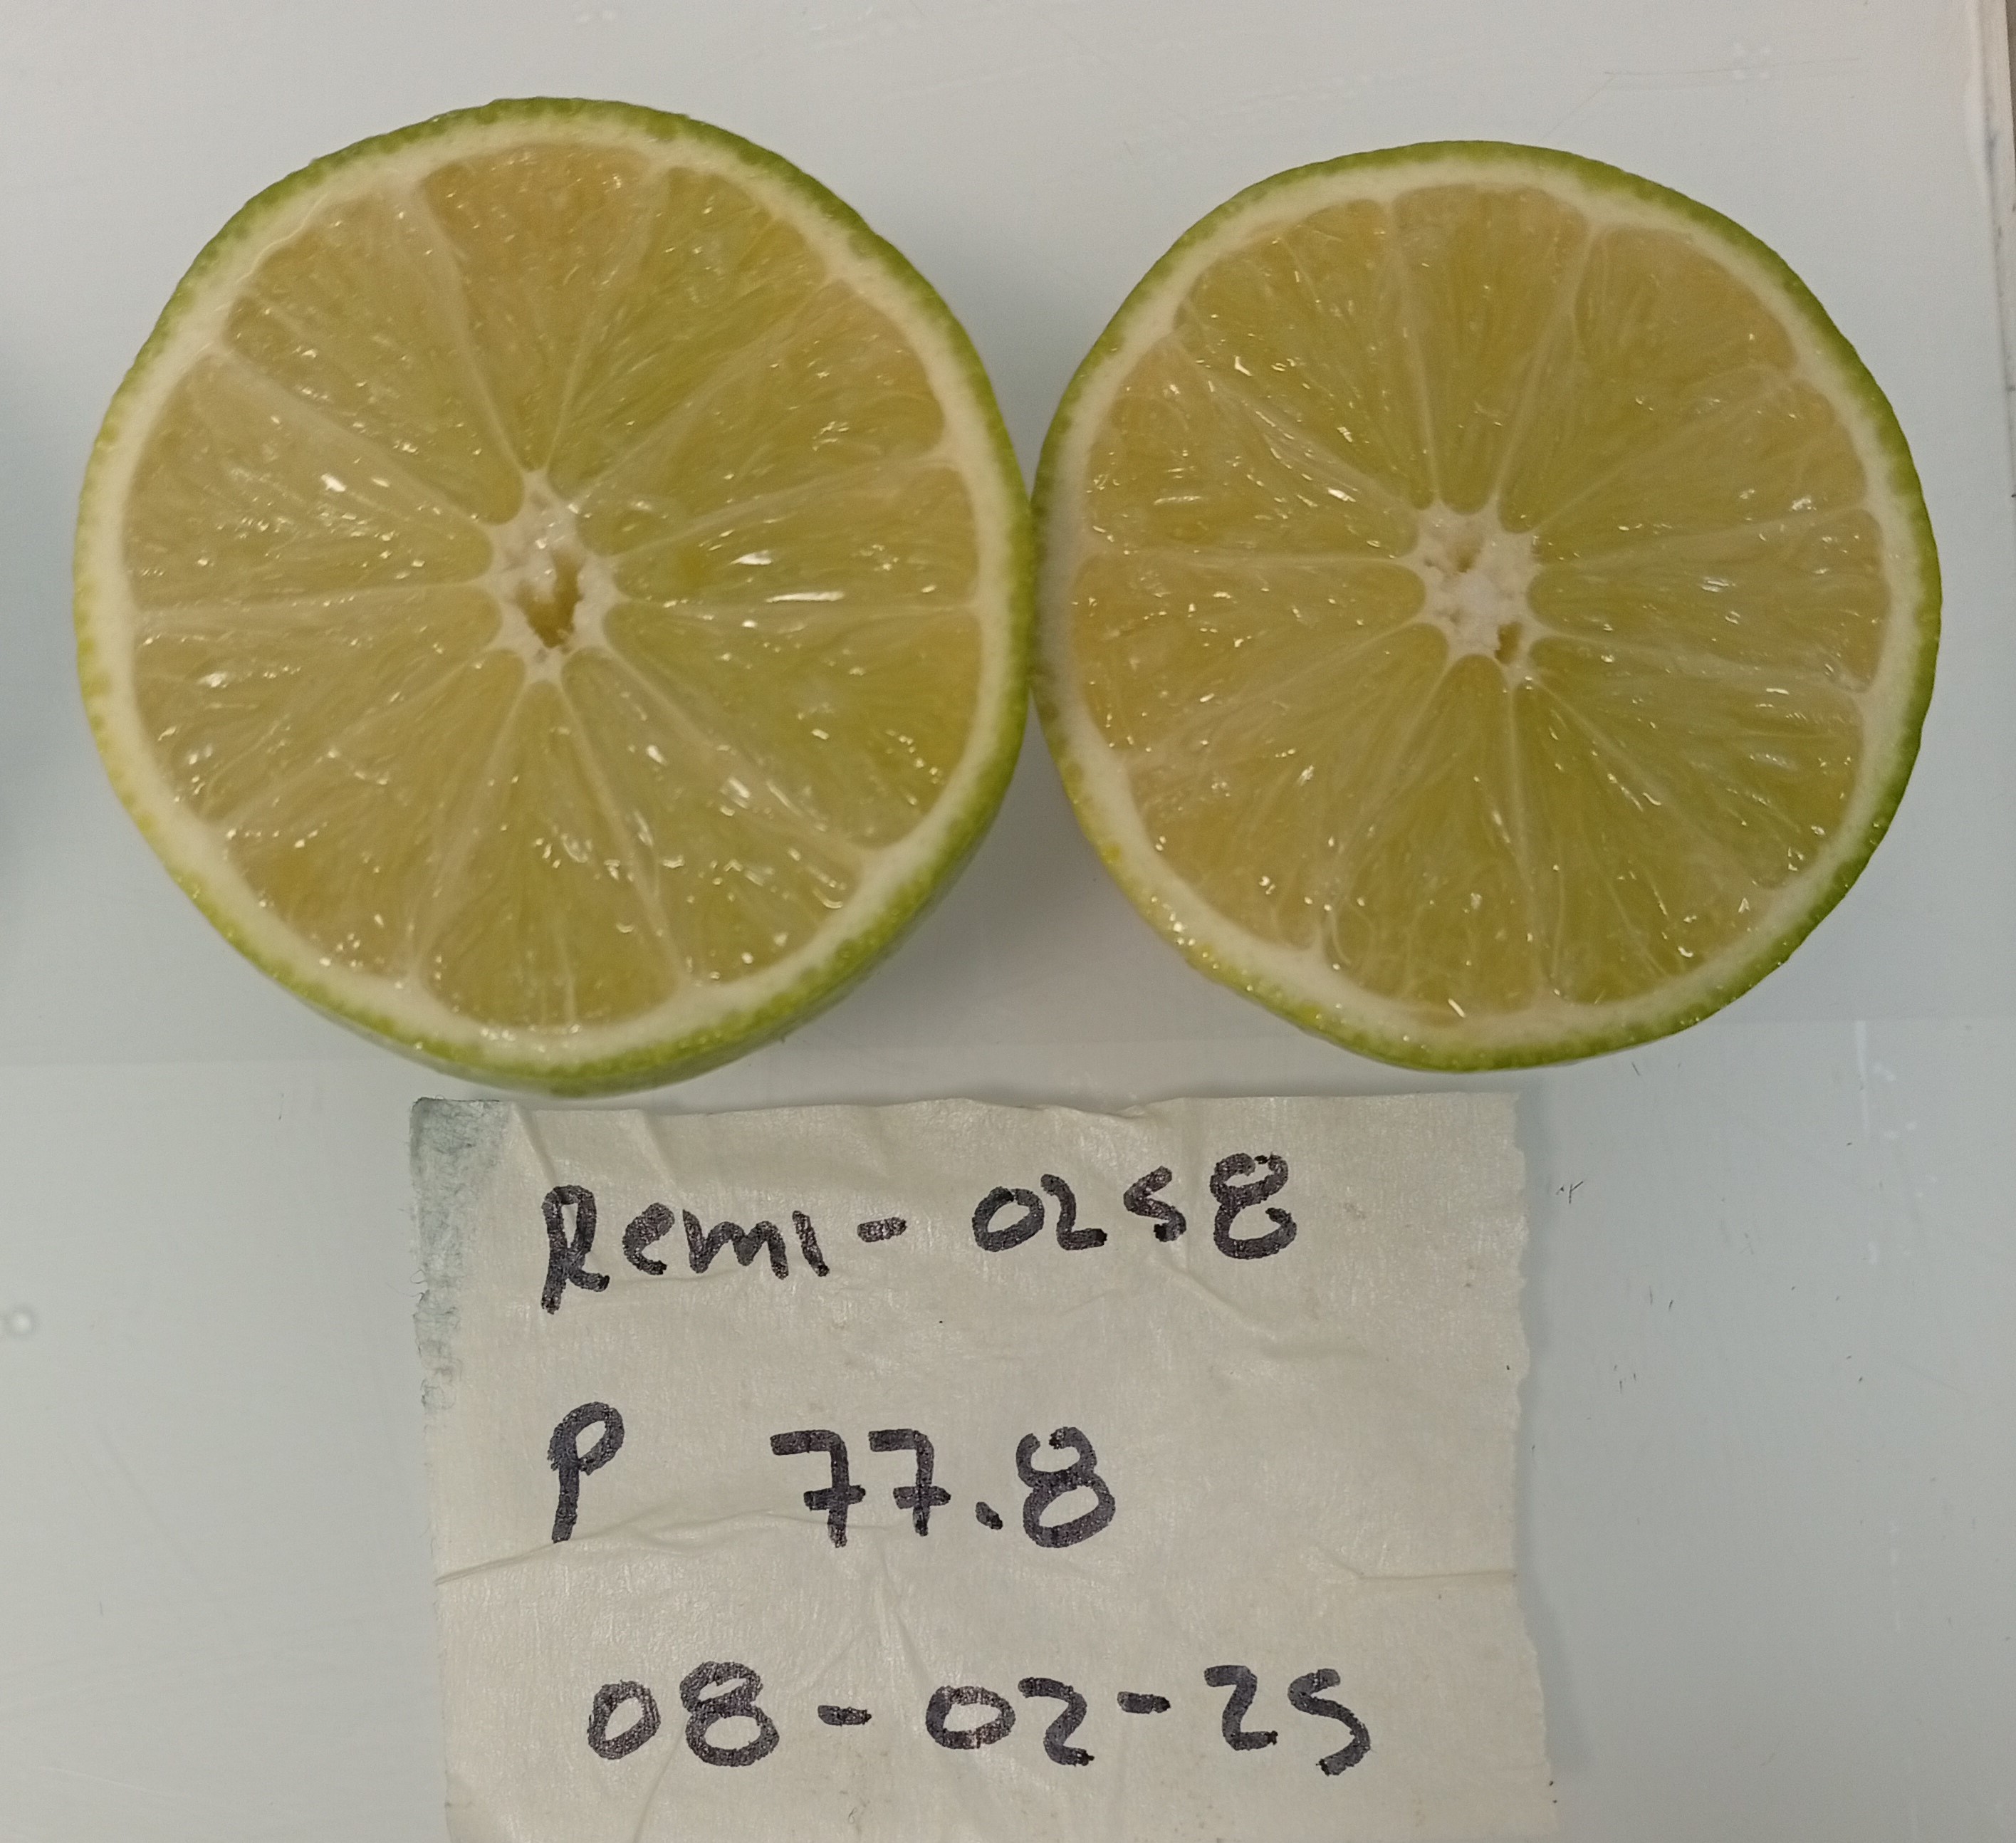 Remi - 0258
P 77.8
08-02-25